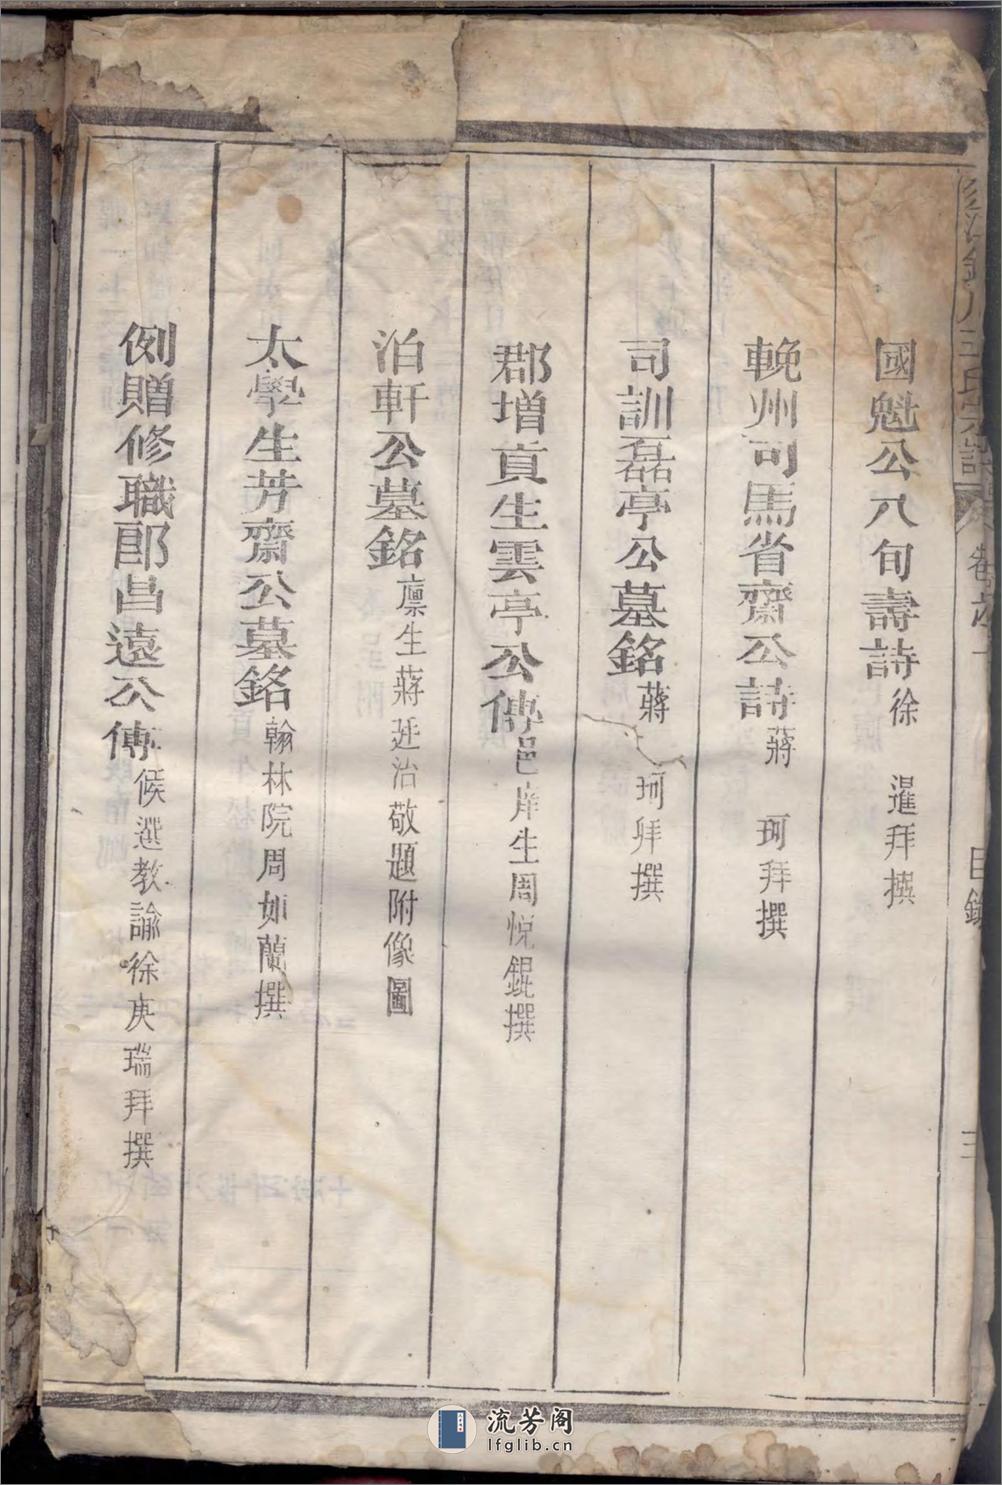 國魁公八旬壽詩 徐 暹拜撰
輓州司馬省齋公詩 蔣 珂拜撰
司訓磊亭公墓銘 蔣 珂拜撰
郡增貢生雲亭公傳 邑庠生周悅錕撰
泊軒公墓銘 廩生蔣廷治敬題附像圖
太學生芳齋公墓銘 翰林院周如蘭撰
例贈修職郎昌遠公傳 候選教諭徐庚瑞拜撰
氏宗譜 卷之 目錄 三
流芳阁
lfglib.cn